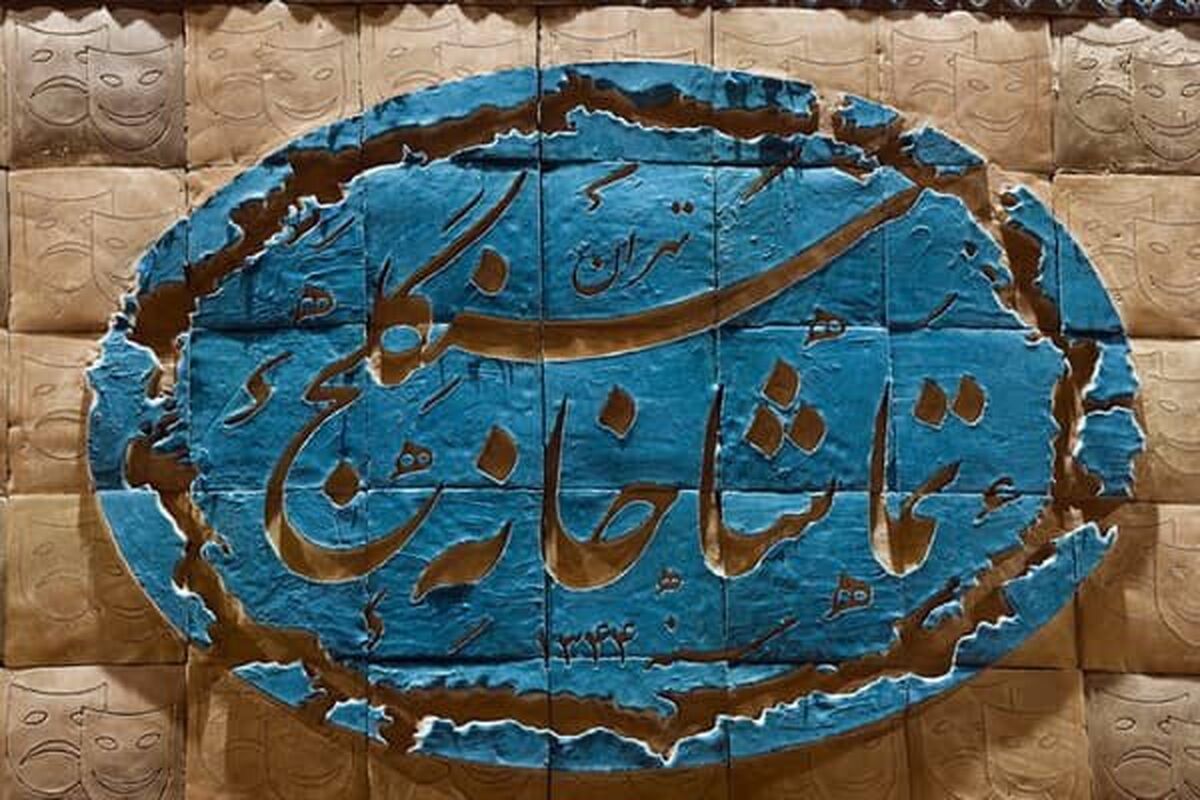 تهران
تماشاخانه
سنگلج
سنه ۱۳۴۴